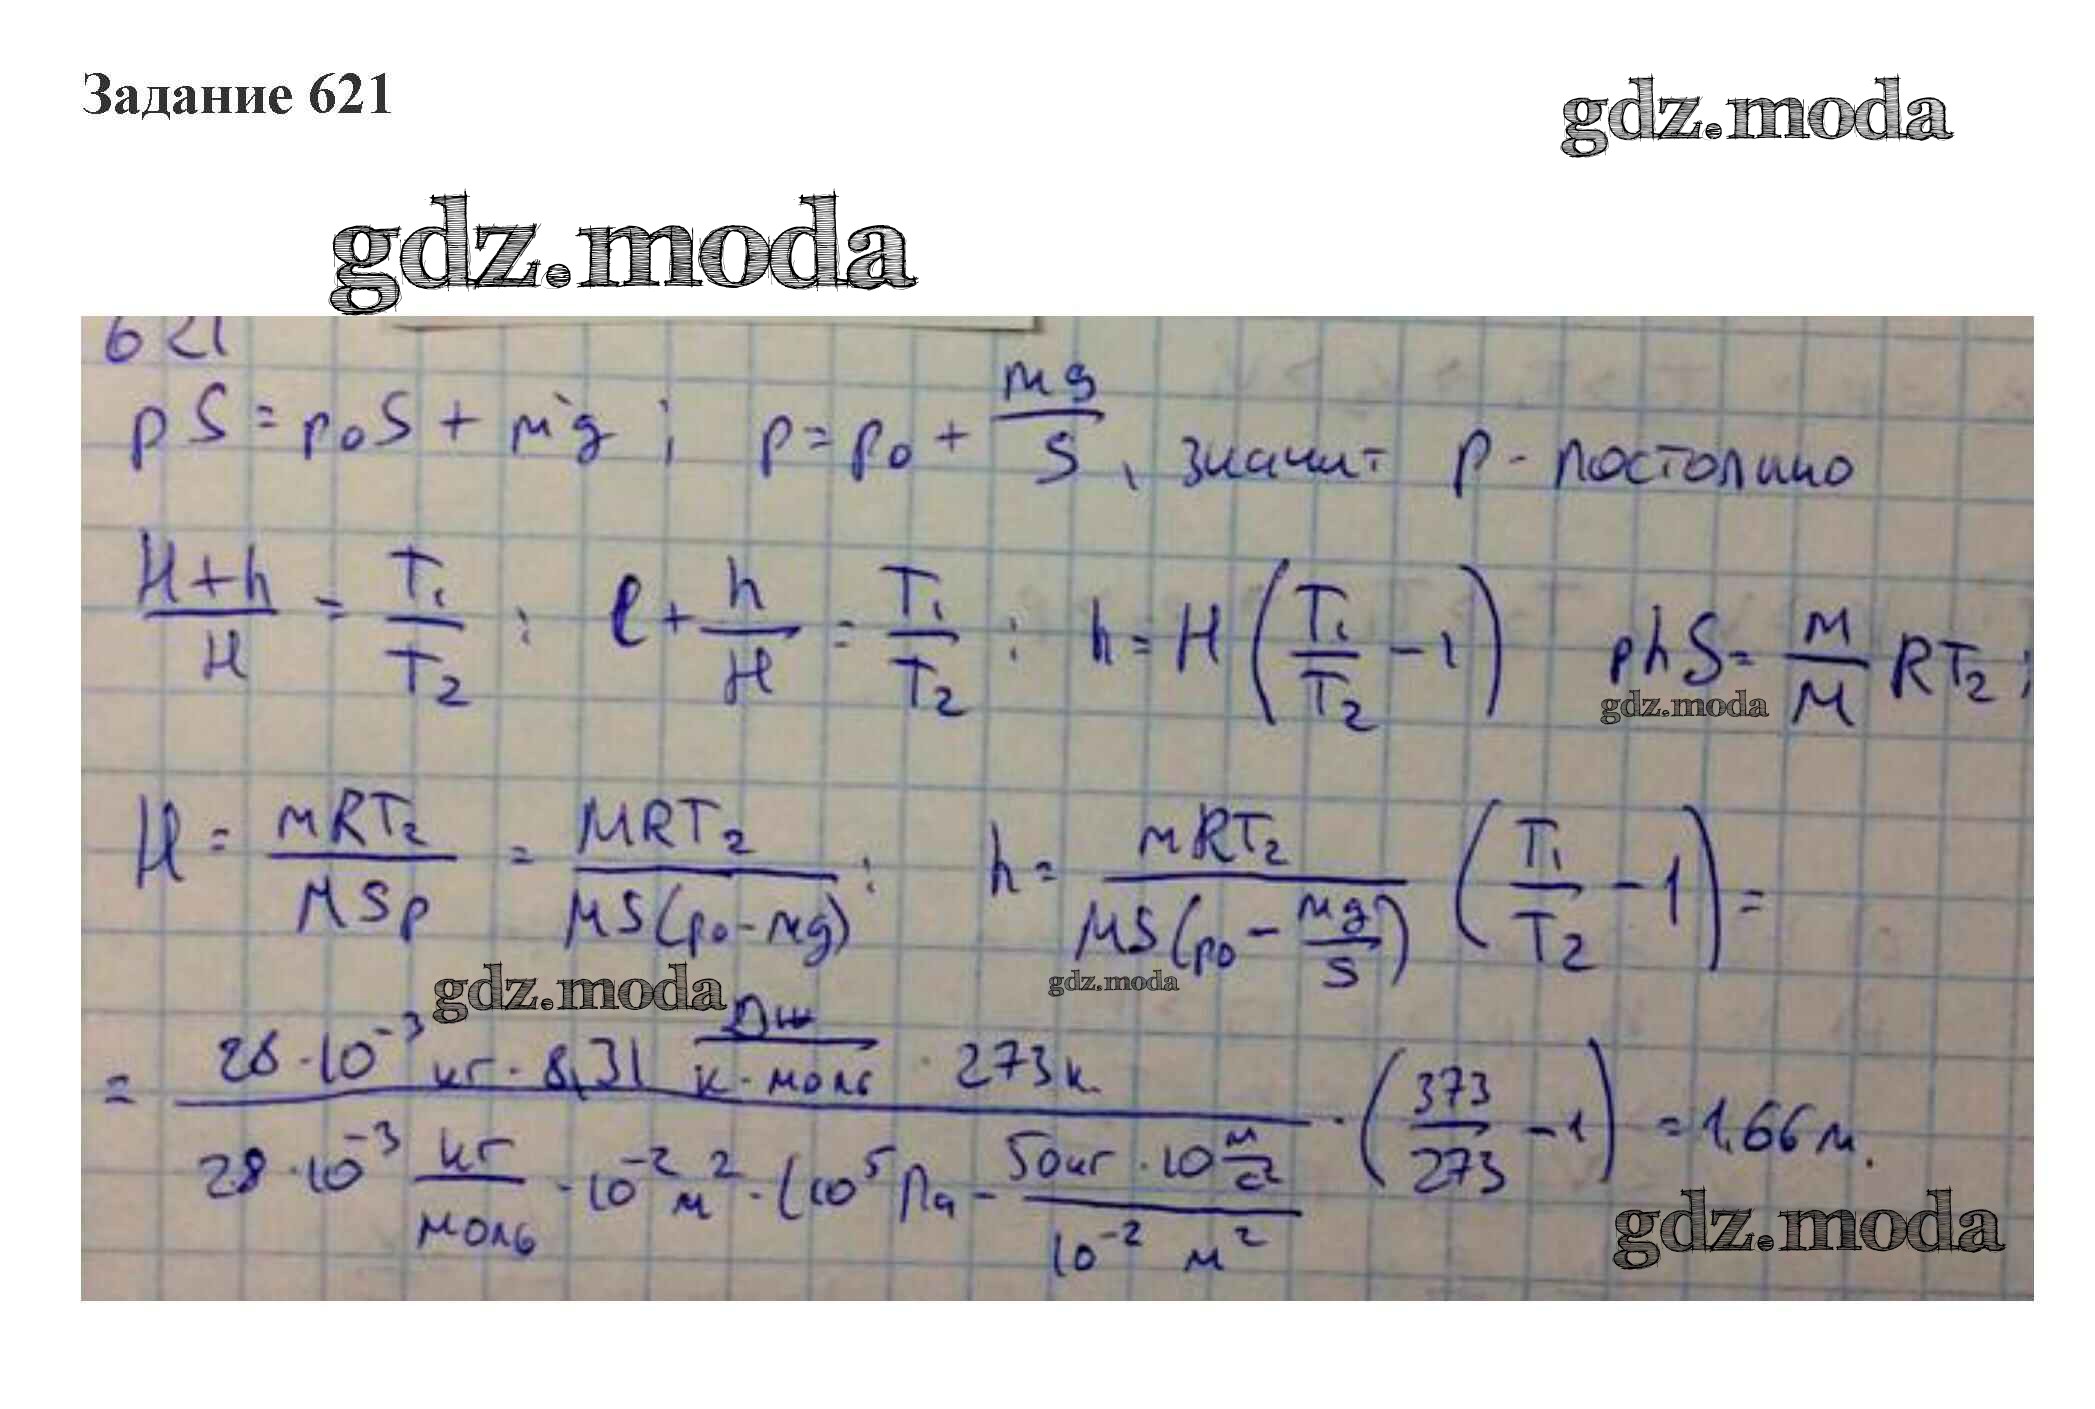 Задание 621
gdz.moda
gdz.moda
621
pS = p₀S + mg ; p = p₀ + mg/S , значит p - постоянно
(H+h)/H = T₁/T₂ ; l + h/H = T₁/T₂ ; h = H (T₁/T₂ - 1) phS = m/M RT₂ ;
gdz.moda
H = mRT₂/MSp = MRT₂/MS(p₀-mg) ; h = mRT₂/MS(p₀ - mg/S) (T₁/T₂ - 1) =
gdz.moda gdz.moda
= 28·10⁻³ кг · 8,31 Дж/К·моль · 273к / 28·10⁻³ кг/моль · 10⁻² м² · (10⁵ Па - 50кг · 10 м/с² / 10⁻² м²) · (373/273 - 1) = 1,66 м.
gdz.moda